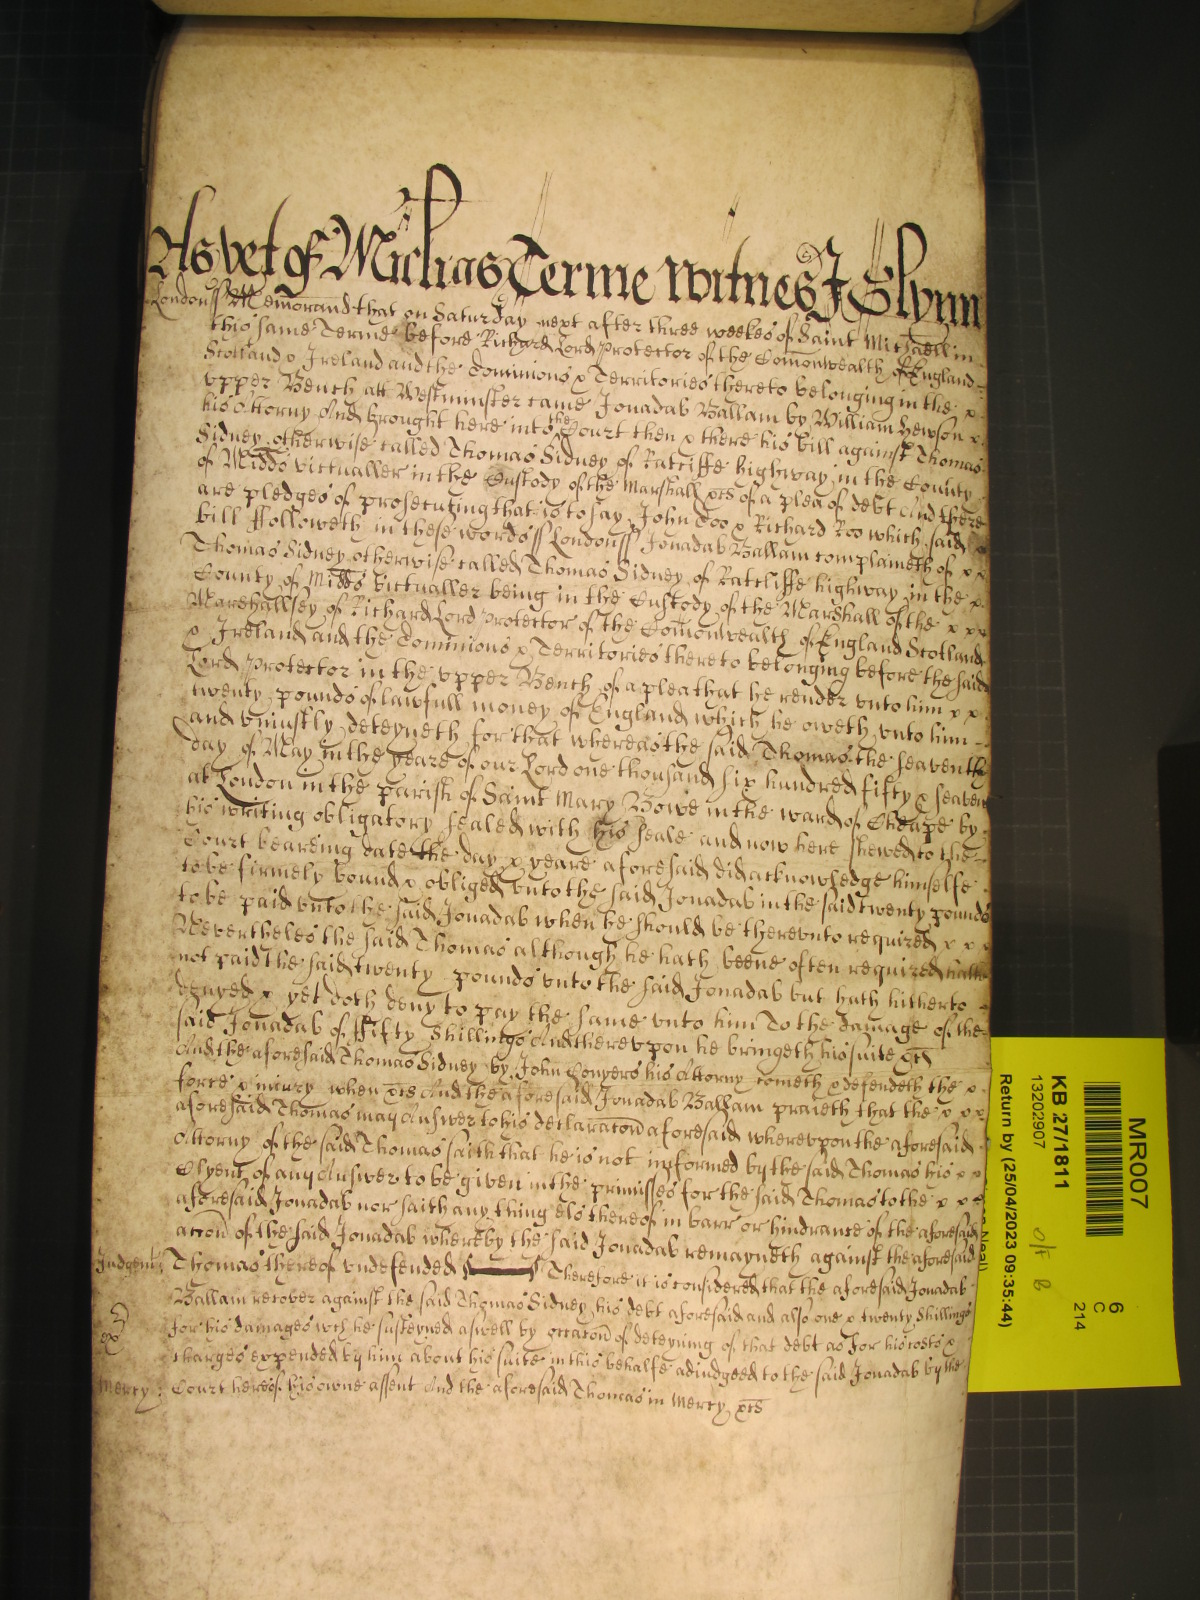 As yet of Michas Terme Witnes J Glynn
Londonss Memorand that on Saturday next after three weekes of Saint Michaell in
this same Terme before Richard Lord Protector of the Comonwealth of England
Scotland & Ireland and the Dominions & Territories thereto belonging in the x
vpper Bench att Westminster came Jonadab Ballam by William Hewson x
his Attorny And brought here into the Court then & there his bill against Thomas
Sidney otherwise called Thomas Sidney of Ratcliffe highway in the County
of Midds victualler in the Custody of the Marshall &c of a plea of debt And there
are pledges of prosecuting that is to say John Doo & Richard Roo which said
bill ffolloweth in these words ss Londonss Jonadab Ballam complaineth of x x
Thomas Sidney otherwise called Thomas Sidney of Ratcliffe highway in the x
County of Midds victualler being in the Custody of the Marshall of the x x x
Marshallsey of Richard Lord Protector of the Comonwealth of England Scotland
& Ireland and the Dominions & Territories thereto belonging before the said
Lord Protector in the vpper Bench of a plea that he render vnto him x x
twenty pounds of lawfull money of England which he oweth vnto him
and vniustly deteyneth for that whereas the said Thomas the seaventh
day of May in the yeare of our Lord one thousand six hundred fifty & seaven
at London in the parish of Saint Mary Bowe in the ward of Cheape by
his writing obligatory sealed with his seale and now here shewed to the
Court beareing date the day & yeare aforesaid did acknowledge himselfe
to be firmely bound & obliged vnto the said Jonadab in the said twenty pounds
to be paid vnto the said Jonadab when he should be therevnto required x x x
Nevertheles the said Thomas although he hath beene often required hath
not paid the said twenty pounds vnto the said Jonadab but hath hitherto
denyed & yet doth deny to pay the same vnto him To the damage of the
said Jonadab of ffifty shillings And therevpon he bringeth his suite &c
And the aforesaid Thomas Sidney by John Conyers his Attorny cometh & defendeth the x
force & iniury when &c And the aforesaid Jonadab Ballam praieth that the x x x
aforesaid Thomas may Answer to his declaracon aforesaid wherevpon the aforesaid
Attorny of the said Thomas saith that he is not informed by the said Thomas his x x
Clyent of any Answer to be given in the primisses for the said Thomas to the x x x
aforesaid Jonadab nor saith any thing els thereof in barr or hindrance of the aforesaid
accon of the said Jonadab whereby the said Jonadab remayneth against the aforesaid
Judgent Thomas thereof vndefended Therefore it is considered that the aforesaid Jonadab
Ballam recover against the said Thomas Sidney his debt aforesaid and also one & twenty shillings
for his damages wch he susteyned aswell by occacon of deteyning of that debt as for his costs &
charges expended by him about his suite in this behalfe adiudged to the said Jonadab by the
Mercy Court here of his owne assent And the aforesaid Thomas in Mercy &c
MR007
6
C
214
KB 27/1811
13202907
Return by (25/04/2023 09:35:44)